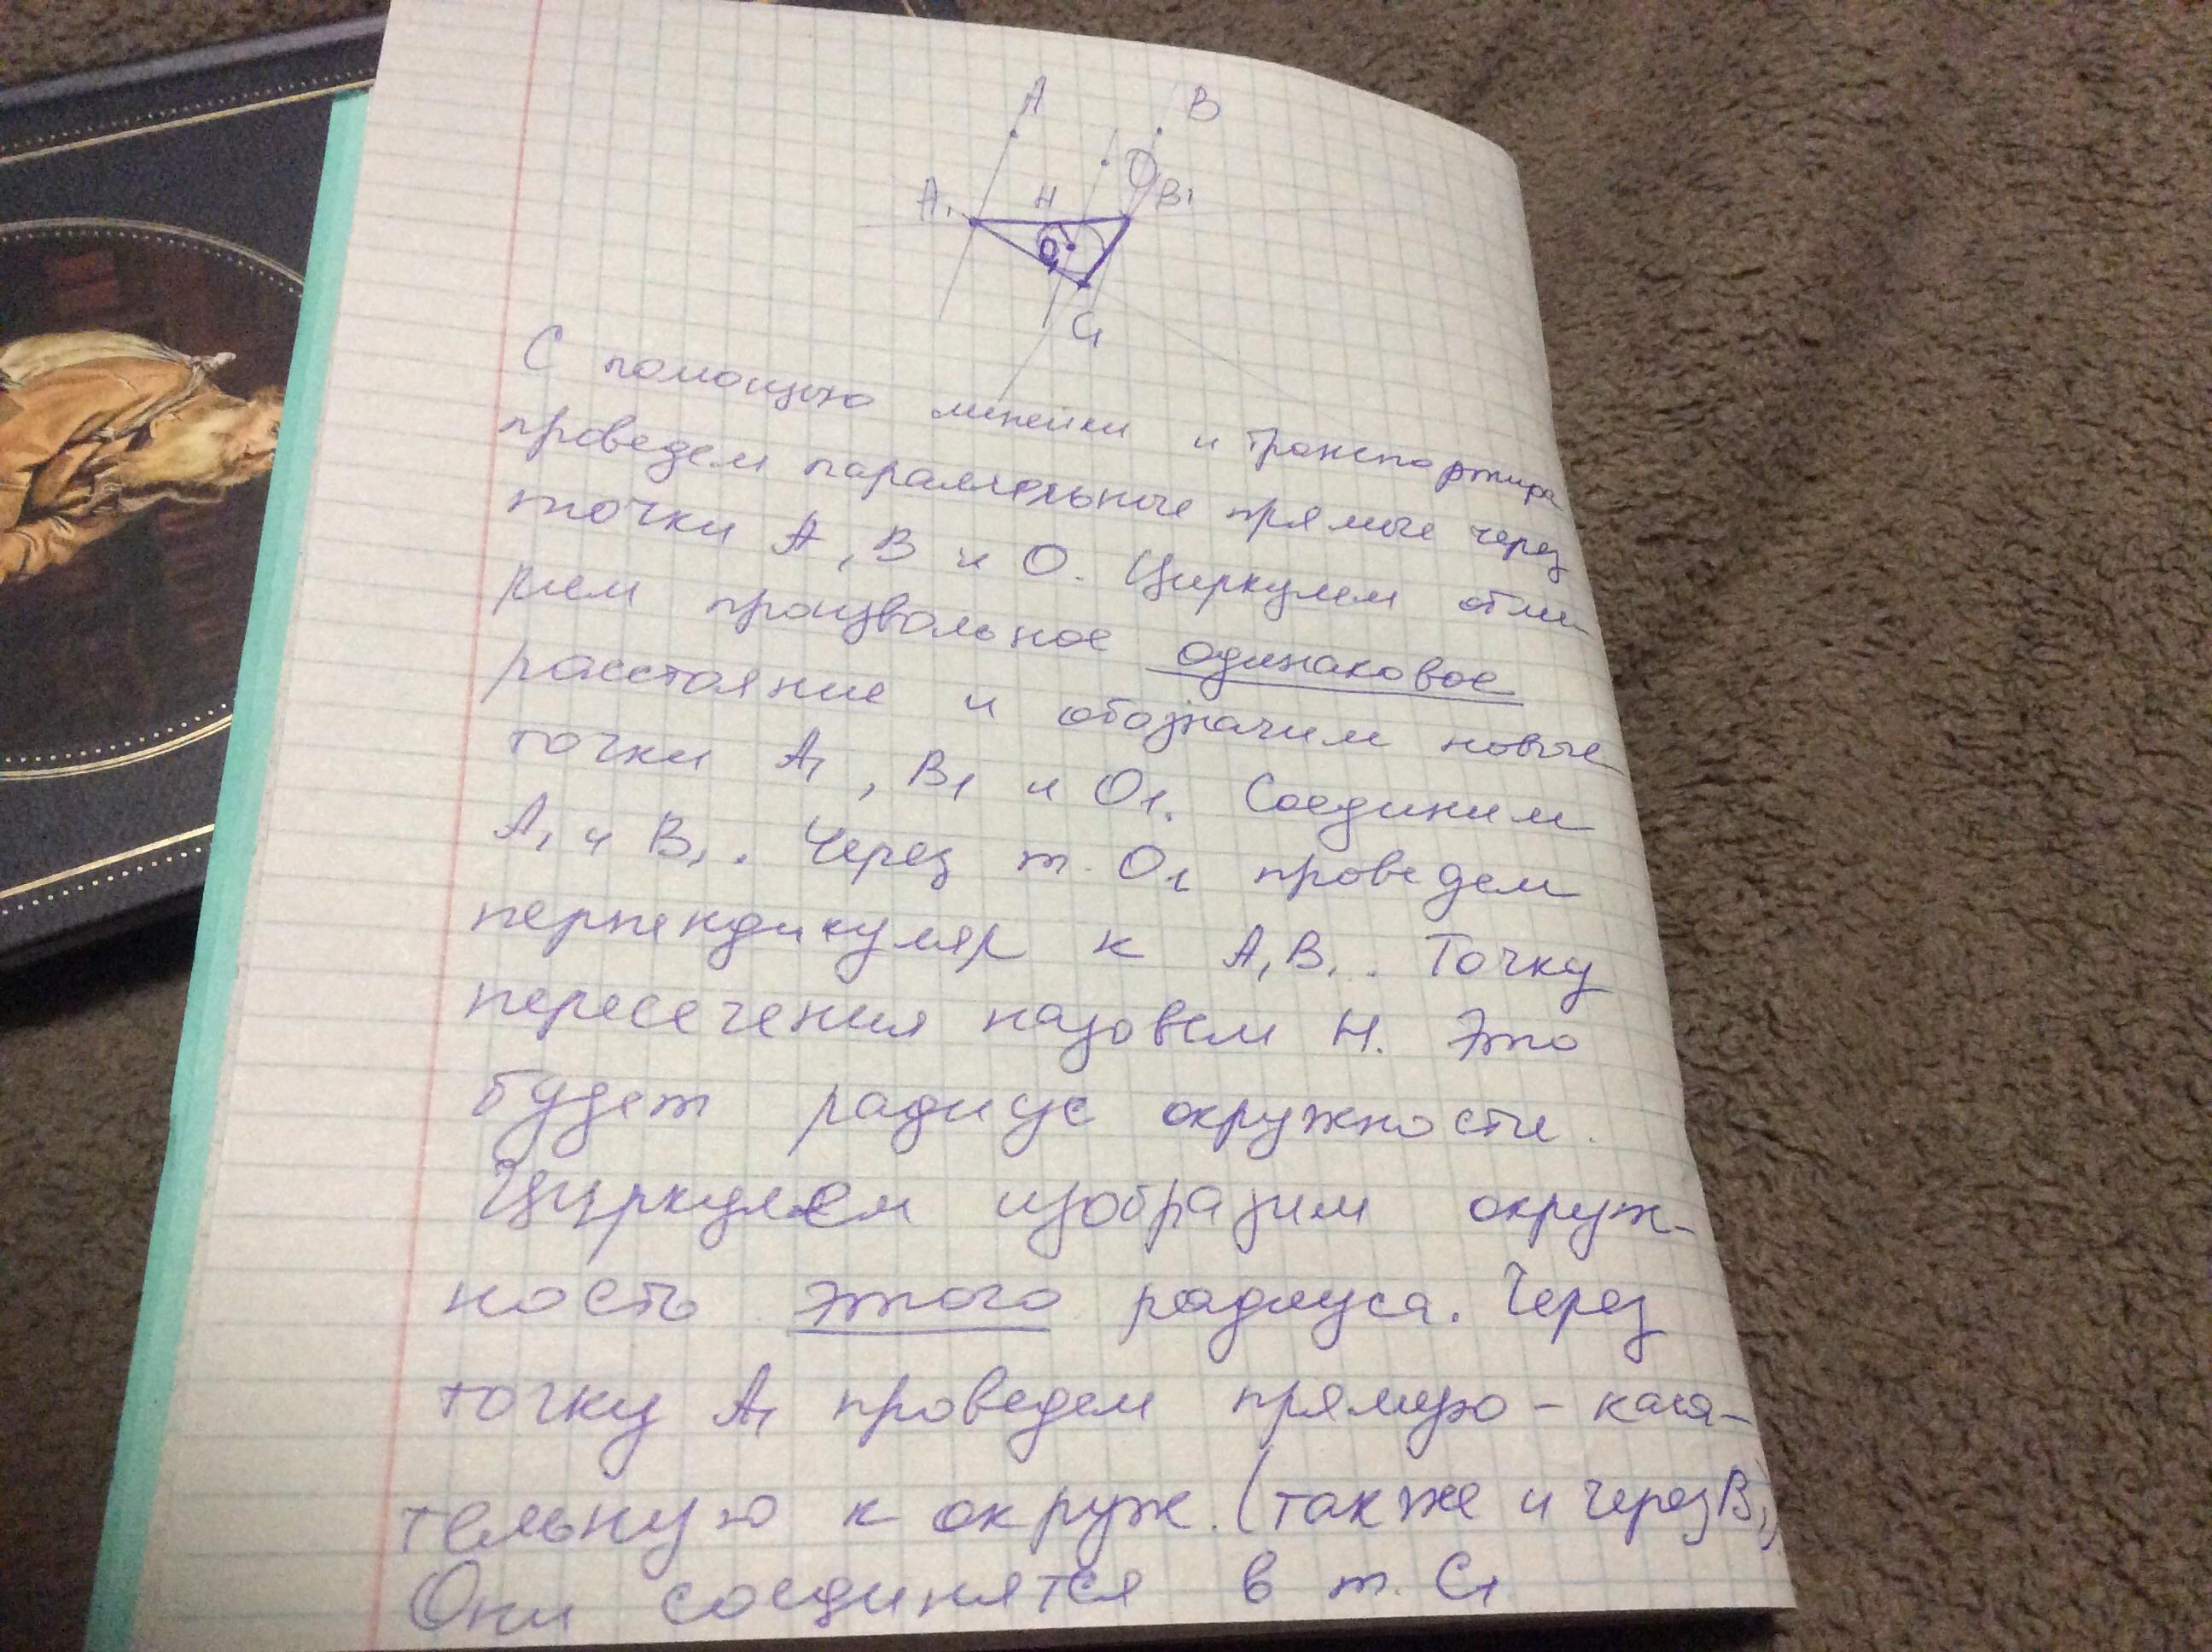 A
B
O
A₁
H
B₁
O
C₁
С помощью линейки и транспортира
проведем параллельные прямые через
точки A, B и O. Циркулем отме-
рием произвольное одинаковое
расстояние и обозначим новые
точки A₁, B₁ и O₁. Соединим
A₁ и B₁. Через т. O₁ проведем
перпендикуляр к A₁B₁. Точку
пересечения назовем H. Это
будет радиус окружности.
Циркулем изобразим окруж-
ность этого радиуса. Через
точку A₁ проведем прямую - каса-
тельную к окруж. (так же и через B₁)
Они соединятся в т. C₁